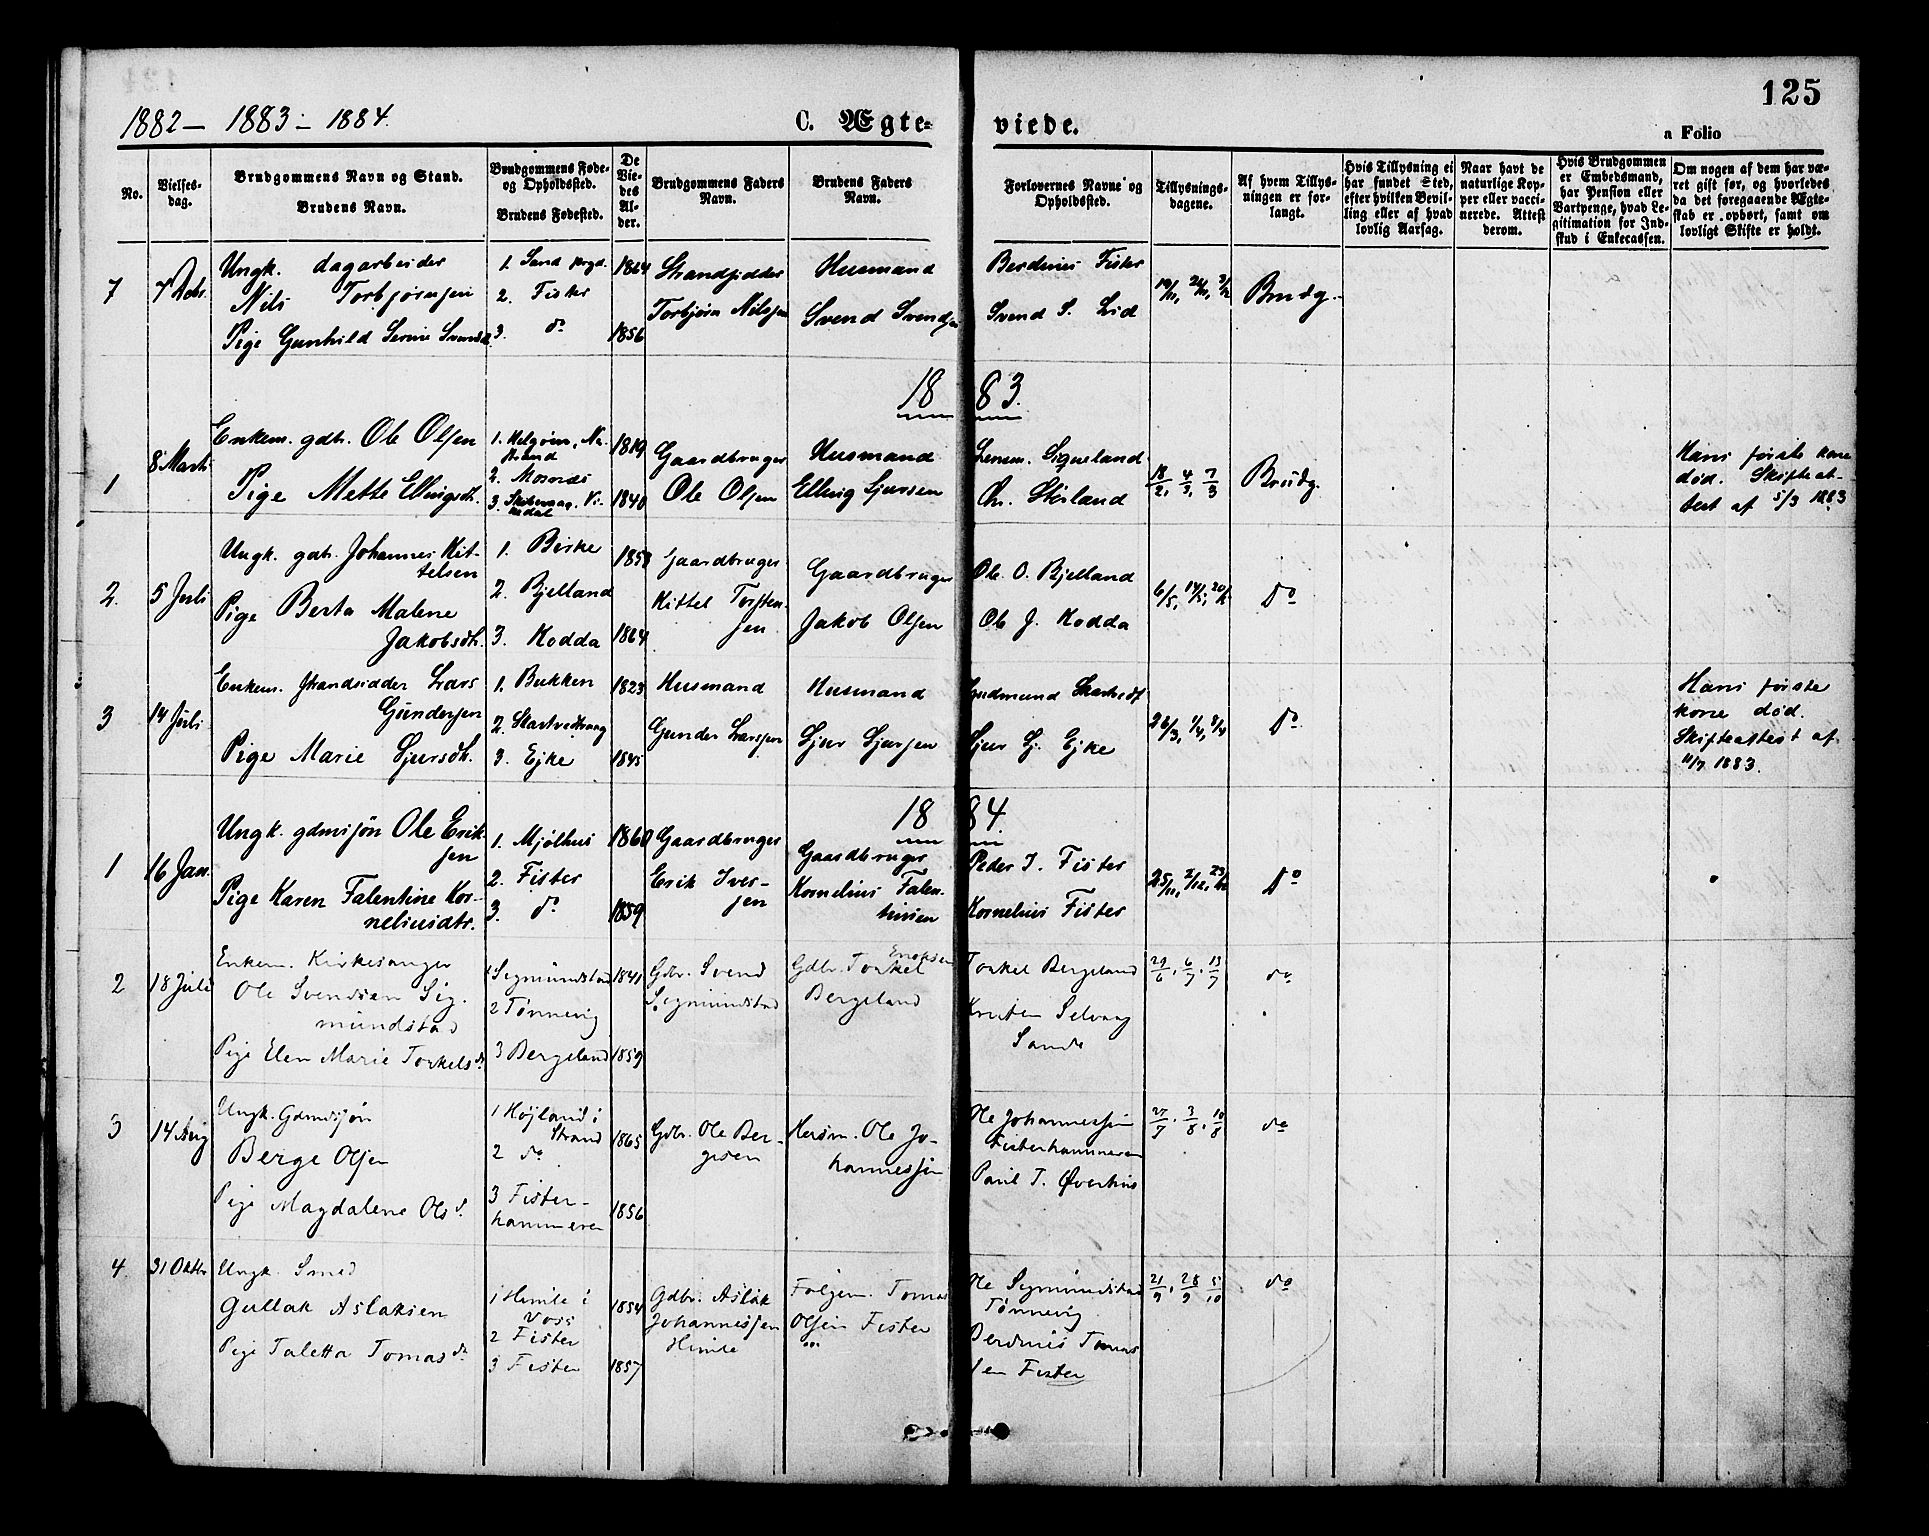 125
1882 – 1883 – 1884.
C. Ægte- viede.
a Folio
No.
Vielses-
dag.
Brudgommens Navn og Stand.
Brudens Navn.
Brudgommens Føde-
og Opholdssted.
Brudens Fødested.
De
Vie-
des
Al-
der.
Brudgommens Faders
Navn.
Brudens Faders
Navn.
Forlovernes Navne og
Opholdssted.
Tillysnings-
dagene.
Af hvem Tillys-
ningen er for-
langt.
Hvis Tillysning ei
har fundet Sted,
efter hvilken Bevil-
ling eller af hvad
lovlig Aarsag.
Naar havt de
naturlige Kop-
per eller vacci-
nerede. Attest
derom.
Hvis Brudgommen
er Embedsmand,
har Pension eller
Vartpenge, hvad Le-
gitimation for Ind-
skud i Enkecassen.
Om nogen af dem har væ-
ret gift før, og hvorledes
da det foregaaende Ægte-
skab er ophørt, samt om
lovligt Skifte er holdt.
7
Ungk. dagarbeider
Nils Torbjørnsen
Pige Gunhild Serine Svendsd.
1. Sand prgd.
2. Fister
3. do
1864
1856
Strandsidder
Torbjørn Nilssen
Husmand
Svend Svendsen
Berdines Fister
Svend S. Lid
19/11, 26/11, 3/12
Brudg.
1883.
1
8 Marts
Enkem. gdbr. Ole Olsen
Pige Mette Ellingsdtr.
1. Helgøen, Ne-
strand
2. Mosnæs
3.
1819
1840
Gaardbruger
Ole Olsen
Husmand
Elling Sjursen
Lensm. Sigveland
Chr.
18/2, 4/3, 7/3
Brudg.
Hans første kone
død. Skifteat-
test af 5/3 1883
2.
5 Juli
Ungk. gdbr. Johannes Kit-
telsen
Pige Berta Malene
Jakobsdtr.
1. Birke
2. Bjelland
3. Hodda
1858
1864
Gaardbruger
Kittel Torsten-
sen
Gaardbruger
Jakob Olsen
Ole O. Bjelland
Ole J. Hodda
6/5, 14/5, 20/5
do
3
14 Juli
Enkem. strandsidder Lars
Gundersen
Pige Marie Sjursdtr.
1. Bukken
2.
3. Ejke
1823
1845
Husmand
Gunder Larssen
Husmand
Sjur Sjursen
Gudmund
Sjur Sj. Ejke
26/3, 1/4, 8/4
do
Hans første
kone død.
Skifteattest af
11/7 1883.
1884.
1
16 Jan.
Ungk. gdmsjøn Ole Erik-
sen
Pige Karen Falentine Kor-
neliusdtr.
1. Mjølhus
2. Fister
3. do
1860
1859
Gaardbruger
Erik Iver-
sen
Gaardbruger
Kornelius Falen-
tinsen
Peder I. Fister
Kornelius Fister
25/11, 2/12, 23/12
do
2
18 Juli
Enkem. Kirkesanger
Ole Svendsen Sig-
mundstad
Pige Elen Marie Torkelsdr.
1 Sigmundstad
2 Tønnevig
3 Bergeland
1841
1859
Gdbr. Svend
Sigmundstad
Gdbr. Torkel Eriksen
Bergeland
Torkel Bergeland
Knuten Selvaag
Sande
29/6, 6/7, 13/7
do
3
14 Aug
Ungk. Gdmdsjøn
Berge Olsen
Pige Magdalene Olsd.
1 Højland i
Strand
2 do
3 Fister-
hammeren
1865
1856
Gdbr. Ole Ber-
gesen
Husm. Ole Jo-
hannessen
Ole Johannessen
Fisterhammeren
Paul T. Øverhus
27/7, 3/8, 10/8
do
4.
31 Oktbr
Ungk. Smed
Gullak Aslaksen
Pige Taletta Tomasdr.
1 Himle i
Voss
2 Fister
3 Fister
1854
1857
Gdbr. Aslak
Johannessen
Himle
Følgem. Tomas
Olsen Fister
Ole Sigmundstad
Tønnevig
Berdines Tomas
sen Fister
21/9, 28/9, 5/10
do